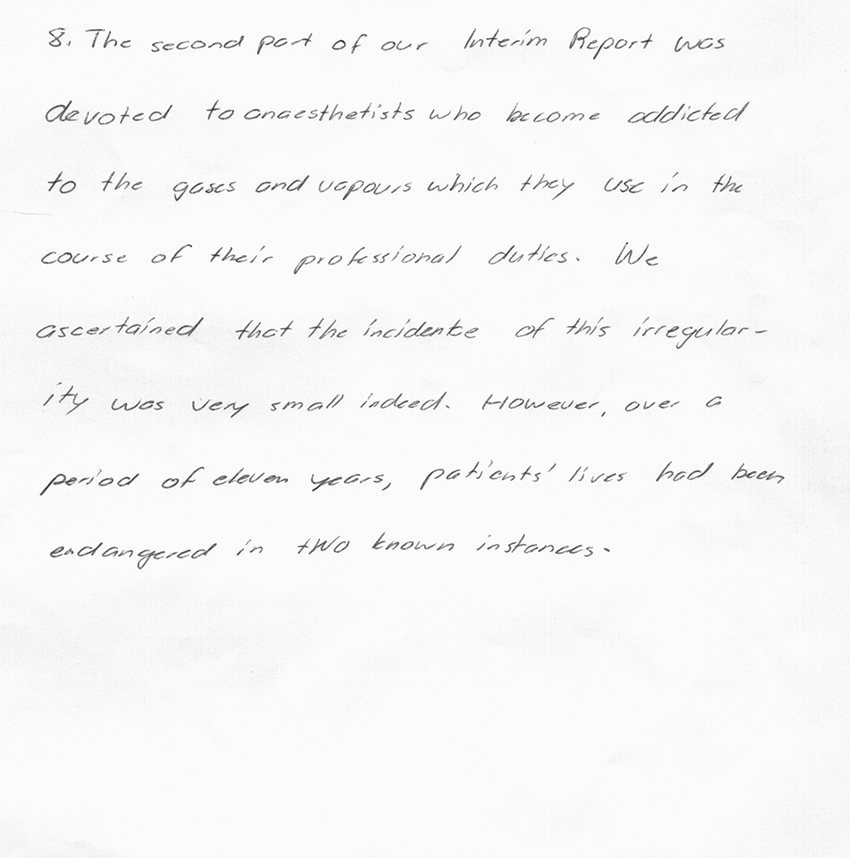 8. The second part of our Interim Report was
devoted to anaesthetists who become addicted
to the gases and vapours which they use in the
course of their professional duties. We
ascertained that the incidente of this irregular-
ity was very small indeed. However, over a
period of eleven years, patients' lives had been
endangered in two known instances.